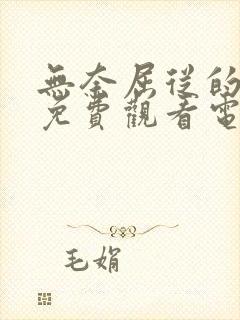 無奈屈從的
免費觀看電
毛娟